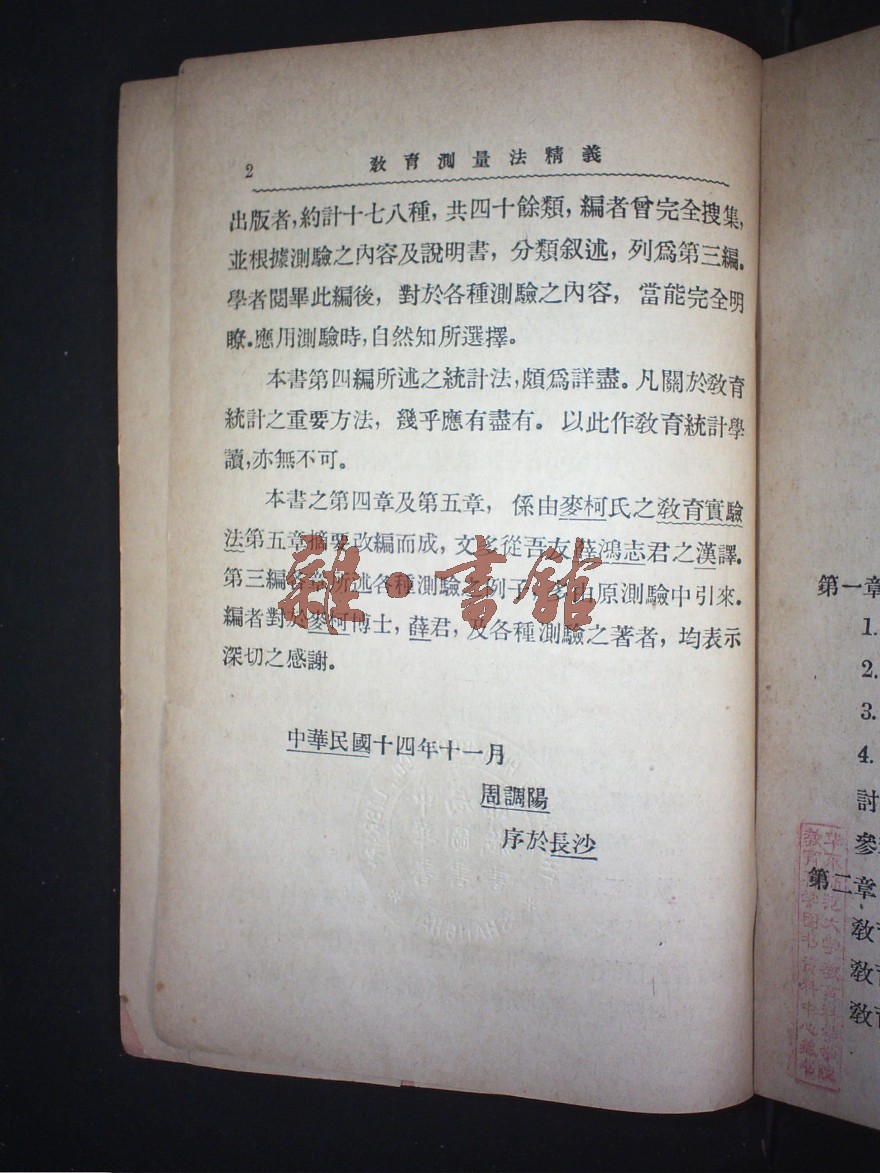 2
教育測量法精義
出版者,約計十七八種,共四十餘類,編者曾完全搜集,
並根據測驗之內容及說明書,分類叙述,列爲第三編.
學者閱畢此編後,對於各種測驗之內容,當能完全明
瞭.應用測驗時,自然知所選擇。
本書第四編所述之統計法,頗爲詳盡。凡關於教育
統計之重要方法,幾乎應有盡有。以此作教育統計學
讀,亦無不可。
本書之第四章及第五章,係由麥柯氏之教育實驗
法第五章摘要改編而成,文多從吾友薛鴻志君之漢譯.
第三編各章所述各種測驗之例子,多由原測驗中引來.
編者對於麥柯博士,薛君,及各種測驗之著者,均表示
深切之感謝。
中華民國十四年十一月
周調陽
序於長沙
雜·書館
第一章
1.
2.
3.
4.
討
參
第二章
教育
教育
教育